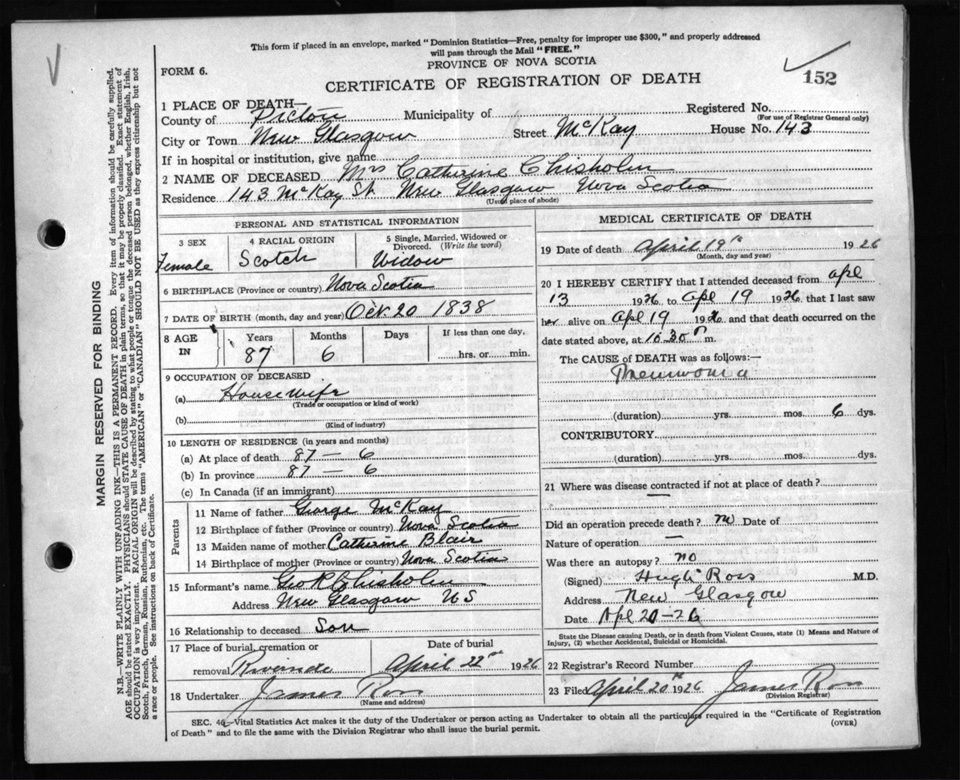 This form if placed in an envelope, marked "Dominion Statistics—Free, penalty for improper use $300," and properly addressed
will pass through the Mail "FREE."
PROVINCE OF NOVA SCOTIA
FORM 6.
CERTIFICATE OF REGISTRATION OF DEATH
152
1 PLACE OF DEATH—
County of Pictou Municipality of Registered No.
(For use of Registrar General only)
City or Town New Glasgow Street McKay House No. 143
If in hospital or institution, give name
2 NAME OF DECEASED Mrs Catherine Chisholm
Residence 143 McKay St New Glasgow Nova Scotia
(Usual place of abode)
PERSONAL AND STATISTICAL INFORMATION
3 SEX
Female
4 RACIAL ORIGIN
Scotch
5 Single, Married, Widowed or
Divorced. (Write the word)
Widow
6 BIRTHPLACE (Province or country) Nova Scotia
7 DATE OF BIRTH (month, day and year) Oct 20 1838
8 AGE IN
Years Months Days If less than one day,
87 6 hrs. or min.
9 OCCUPATION OF DECEASED
(a) Housewife
(Trade or occupation or kind of work)
(b)
(Kind of industry)
10 LENGTH OF RESIDENCE (in years and months)
(a) At place of death 87 — 6
(b) In province 87 — 6
(c) In Canada (if an immigrant)
Parents
11 Name of father George McKay
12 Birthplace of father (Province or country) Nova Scotia
13 Maiden name of mother Catherine Blair
14 Birthplace of mother (Province or country) Nova Scotia
15 Informant's name Geo R Chisholm
Address New Glasgow NS
16 Relationship to deceased Son
17 Place of burial, cremation or Date of burial
removal April 22nd 1926
18 Undertaker James Ross
(Name and address)
MEDICAL CERTIFICATE OF DEATH
19 Date of death April 19th 1926
(Month, day and year)
20 I HEREBY CERTIFY that I attended deceased from apl
13 1926 to Apl 19 1926 that I last saw
her alive on Apl 19 1926 and that death occurred on the
date stated above, at 10.30 P m.
The CAUSE OF DEATH was as follows:—
Pneumonia
(duration) yrs. mos. 6 dys.
CONTRIBUTORY
(duration) yrs. mos. dys.
21 Where was disease contracted if not at place of death?
—
Did an operation precede death? no Date of
Nature of operation —
Was there an autopsy? no
(Signed) Hugh Ross M.D.
Address New Glasgow
Date Apl 20–26
State the Disease causing Death, or in death from Violent Causes, state (1) Means and Nature of
Injury, (2) whether Accidental, Suicidal or Homicidal.
22 Registrar's Record Number
23 Filed April 20th 1926 James Ross
(Division Registrar)
SEC. 40—Vital Statistics Act makes it the duty of the Undertaker or person acting as Undertaker to obtain all the particulars required in the "Certificate of Registration
of Death" and to file the same with the Division Registrar who shall issue the burial permit.
(OVER)
MARGIN RESERVED FOR BINDING
N.B.—WRITE PLAINLY WITH UNFADING INK—THIS IS A PERMANENT RECORD. Every item of information should be carefully supplied.
AGE should be stated EXACTLY. PHYSICIANS should STATE CAUSE OF DEATH in plain terms, so that it may be properly classified. Exact statement of
OCCUPATION is very important. RACIAL ORIGIN will be described by stating to what people or tongue the deceased person belonged, whether English, Irish,
Scotch, French, German, Russian, Ruthenian, etc. The terms "AMERICAN" or "CANADIAN" SHOULD NOT BE USED as they express citizenship but not
a race or people. See instructions on back of Certificate.